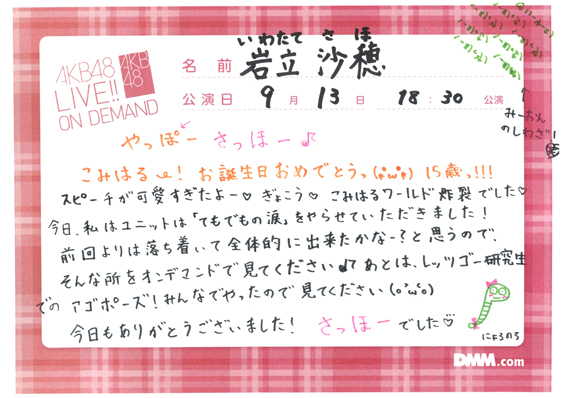 AKB48
LIVE!!
ON DEMAND
AKB
48
いわたて さほ
名前 岩立 沙穂
公演日 9月13日 18:30 公演
みーおん
のしわざ!
やっぽー さっほー♪
こみはるー! お誕生日おめでとうっ(o'ω'o) 15歳っ!!!
スピーチが可愛すぎたよー♡ ぎょこう♡ こみはるワールド炸裂でした♡
今日、私はユニットは「てもでもの涙」をやらせていただきました!
前回よりは落ち着いて全体的に出来たかなー?と思うので、
そんな所をオンデマンドで見てください♪ あとは、レッツゴー研究生
での アゴポーズ! みんなでやったので見てください(o'ω'o)
今日もありがとうございました! さっほーでした♡
にょろのち
DMM.com